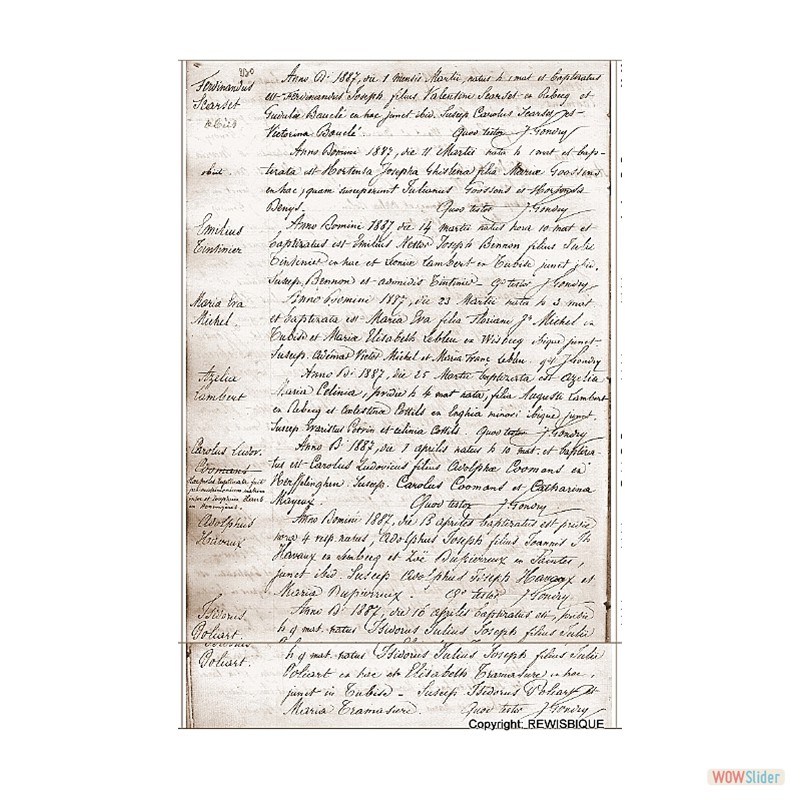 Ferdinandus
Scarset
Anno D. 1887, die 1 mensis Martii, natus h 1 mat et baptizatus
est Ferdinandus Joseph filius Valentini Scarset en Rebecq et
Gudulæ Bouclé en hac junct ibid. Suscep Carolus Scarset et
Victorina Bouclé. Quod testor J. Gondry
obiit
Anno Domini 1887, die 11 Martii nata h 1 mat et bap-
tizata est Hortensa Josepha Ghislena filia Mariæ Goossens
en hac, quam susceperunt Julianus Goossens et
Denys. Quod testor J. Gondry
Emilius
Tintinier
Anno Domini 1887 die 14 martii natus hora 10 mat et
baptizatus est Emilius Nestor Joseph Bennon filius
Tintinier en hac et Lambert en Tubise junct ibi.
Suscep. Bennon et Tintinier. Qd testor J. Gondry
Maria Eva
Michel.
Anno Domini 1887, die 23 Martii nata h 3 mat
et baptizata est Maria Eva filia Floriani Jh Michel en
Tubise et Maria Elisabeth Lebleu en Wisbecq ibique junct
Suscep. Victor Michel et Maria Franc Lebleu. qd J. Gondry
Azelia
Lambert
Anno D. 1887, die 25 Martii baptizata est Azelia
Maria Celinia, pridie h 4 mat nata, filia Augusti Lambert
en Rebecq et Celestina Cottils en Enghia minori ibique junct
Suscep Evaristus Perrin et Celinia Cottils Quod testor J. Gondry
Carolus Ludov.
Coomans
Anno D. 1887, die 1 aprilis natus h 10 mat. et baptiza-
tus est Carolus Ludovicus filius Adolphæ Coomans en
Herffelinghen. Suscep. Carolus Coomans et Catharina
Mayeux. Quod testor J. Gondry
Adolphus
Havaux
Anno Domini 1887, die 15 aprilis baptizatus est pridie
hora 4 vesp natus, Adolphus Joseph filius Joannis Jh
Havaux en Lembecq et Zoë Dupierreux en Saintes,
junct ibid. Suscep Adolphus Joseph Havaux et
Maria Dupierreux. Qd testor J. Gondry.
Isidorus
Poliart.
Anno D. 1887, die 16 aprilis baptizatus est, pridie
h 9 mat. natus Isidorus Julius Joseph filius Julii
Poliart.
h 9 mat. natus Isidorus Julius Joseph filius Julii
Poliart en hac et Elisabeth Tramasure en hac,
junct in Tubise. Suscep Isidorus Poliart et
Maria Tramasure. Quod testor J. Gondry
Copyright: REWISBIQUE
WOWSlider